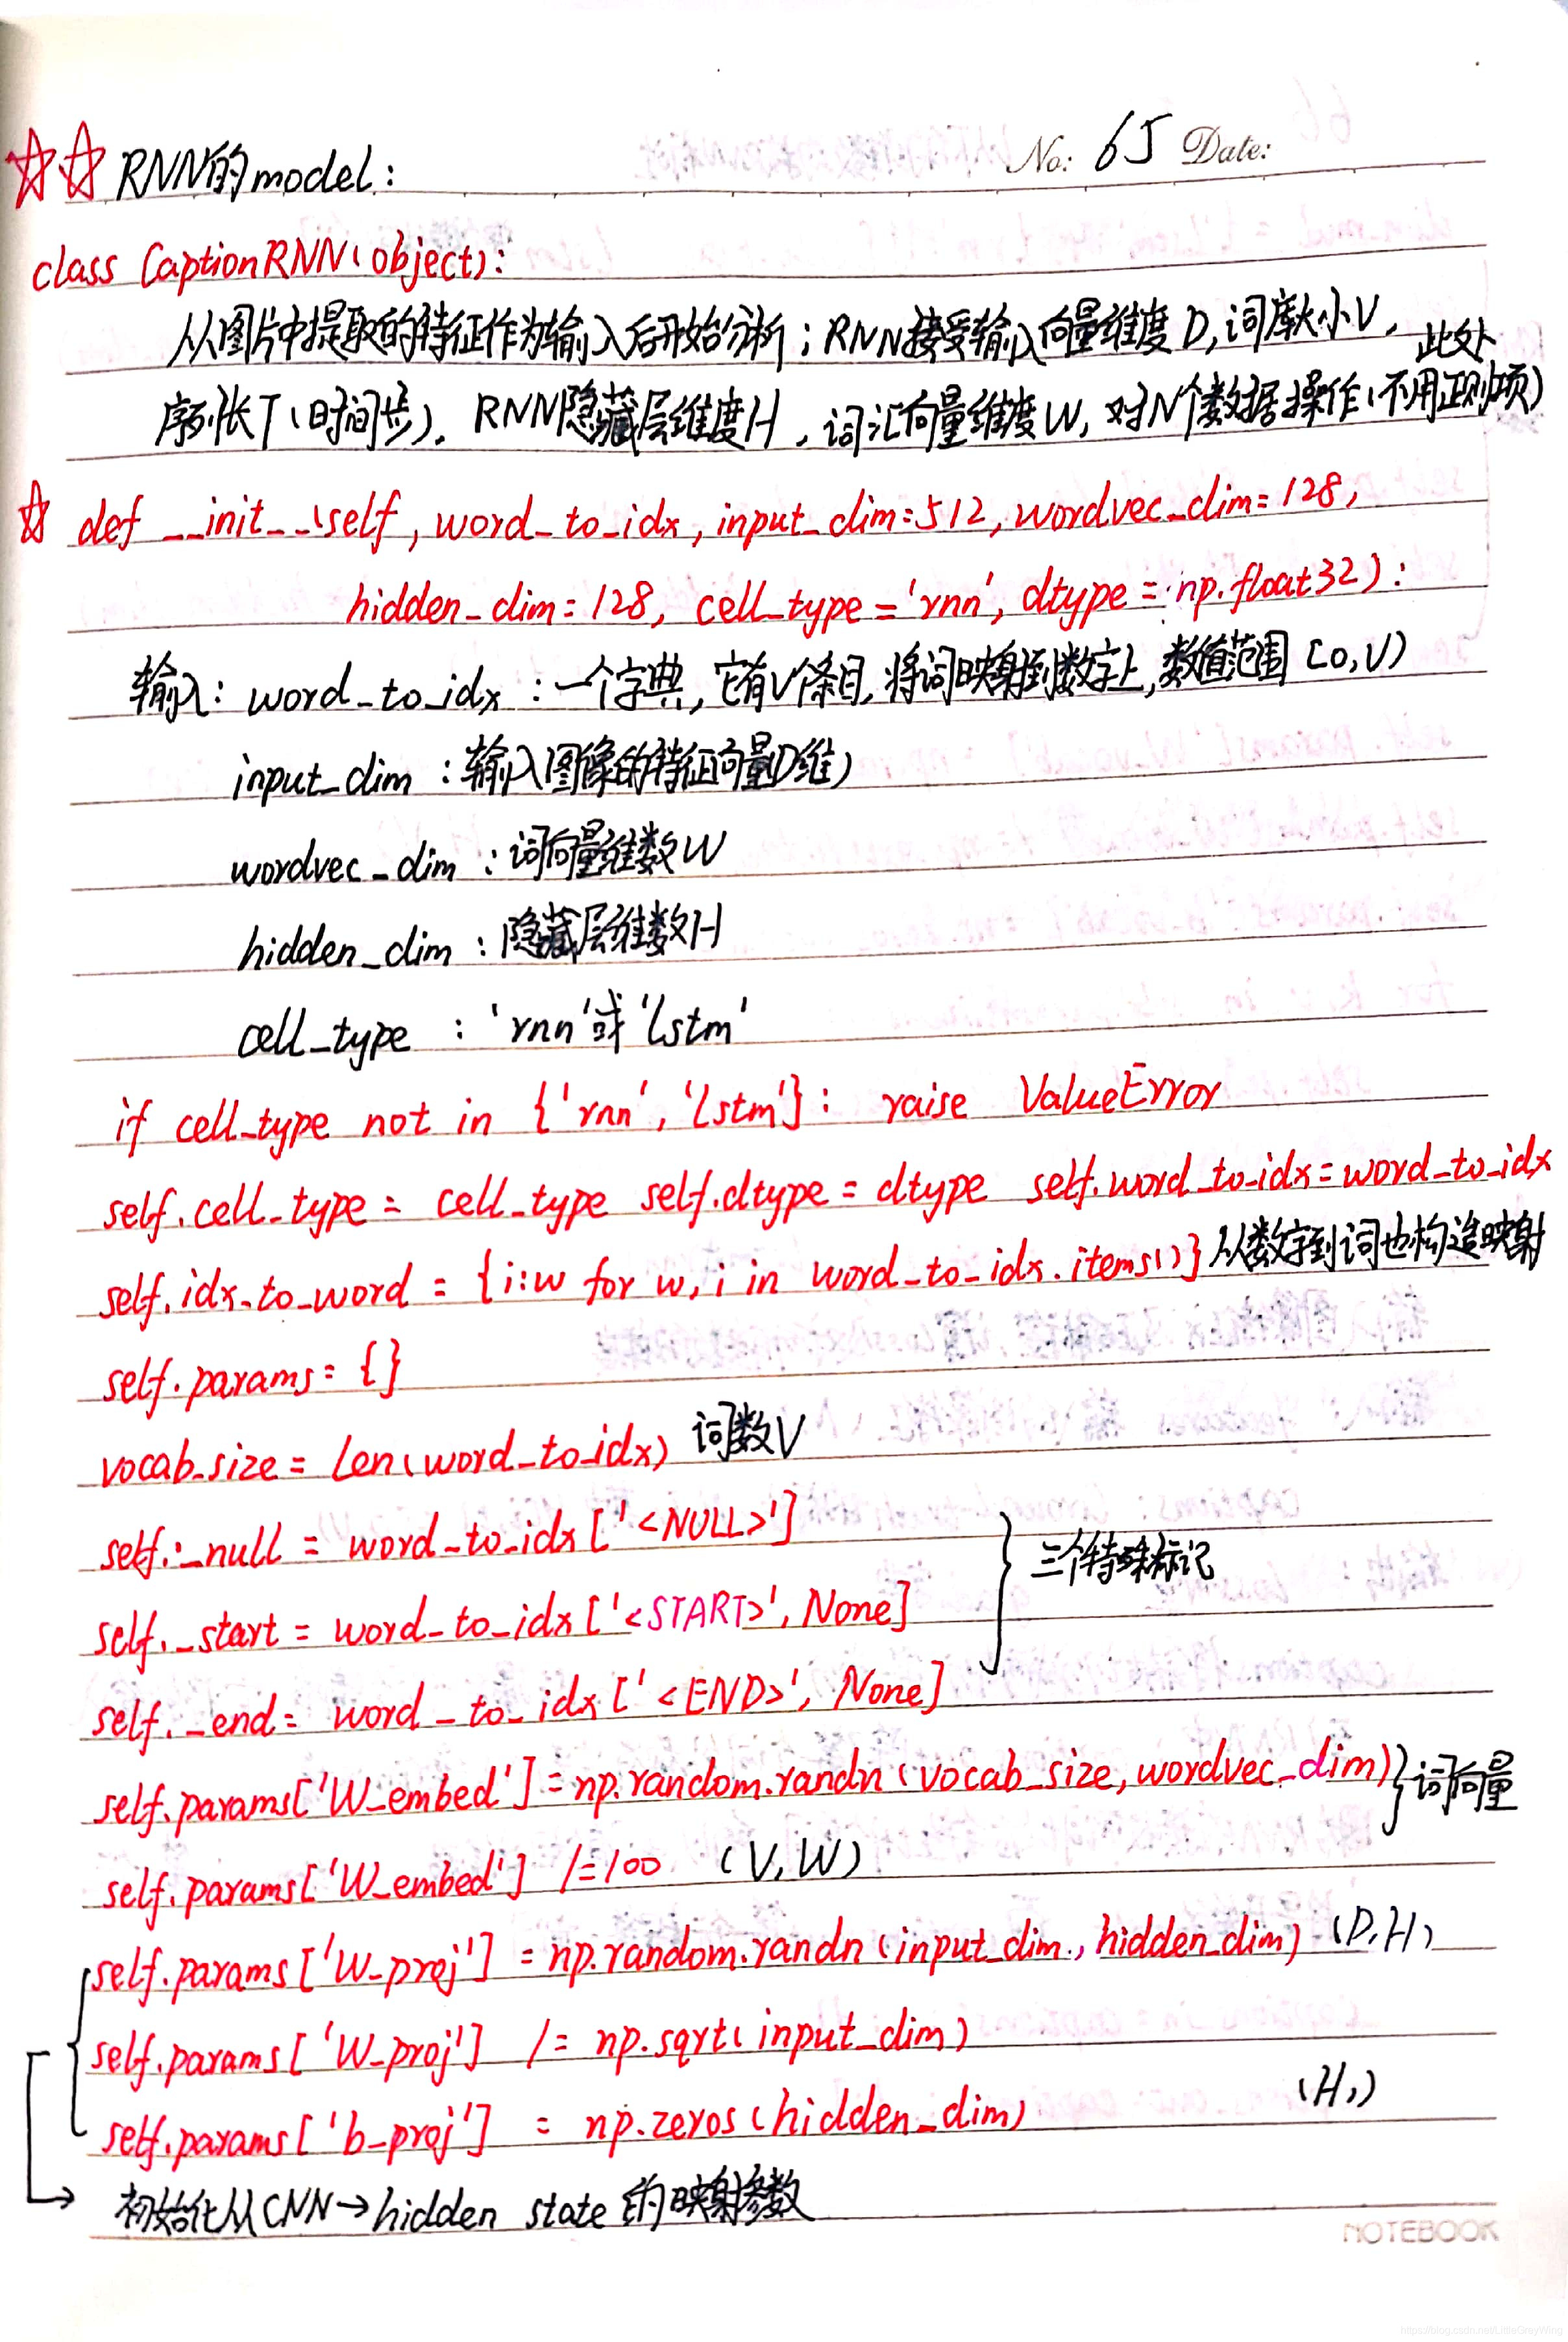 No: 65 Date:
☆☆ RNN的model:
class CaptionRNN(object):
从图片中提取的特征作为输入后开始分析；RNN接受输入向量维度D,词库大小V,
序列长T(时间步), RNN隐藏层维度H, 词汇向量维度W, 对N个数据操作(此处不用正则项)
☆ def __init__(self, word_to_idx, input_dim=512, wordvec_dim=128,
hidden_dim=128, cell_type='rnn', dtype=np.float32):
输入: word_to_idx :一个字典, 它有V条目, 将词映射到数字上, 数值范围 [0,V)
input_dim :输入图像的特征向量(D维)
wordvec_dim :词向量维数W
hidden_dim :隐藏层维数H
cell_type : 'rnn'或'lstm'
if cell_type not in {'rnn', 'lstm'}: raise ValueError
self.cell_type = cell_type self.dtype = dtype self.word_to_idx = word_to_idx
self.idx_to_word = {i:w for w,i in word_to_idx.items()} 从数字到词也构造映射
self.params = {}
vocab_size = len(word_to_idx) 词数V
self._null = word_to_idx['<NULL>']
三个特殊标记
self._start = word_to_idx['<START>', None]
self._end = word_to_idx['<END>', None]
self.params['W_embed'] = np.random.randn(vocab_size, wordvec_dim) 词向量
self.params['W_embed'] /= 100 (V,W)
self.params['W_proj'] = np.random.randn(input_dim, hidden_dim) (D,H)
self.params['W_proj'] /= np.sqrt(input_dim)
self.params['b_proj'] = np.zeros(hidden_dim) (H,)
→ 初始化从CNN→hidden state 的映射参数
NOTEBOOK
https://blog.csdn.net/LittleGreyWing